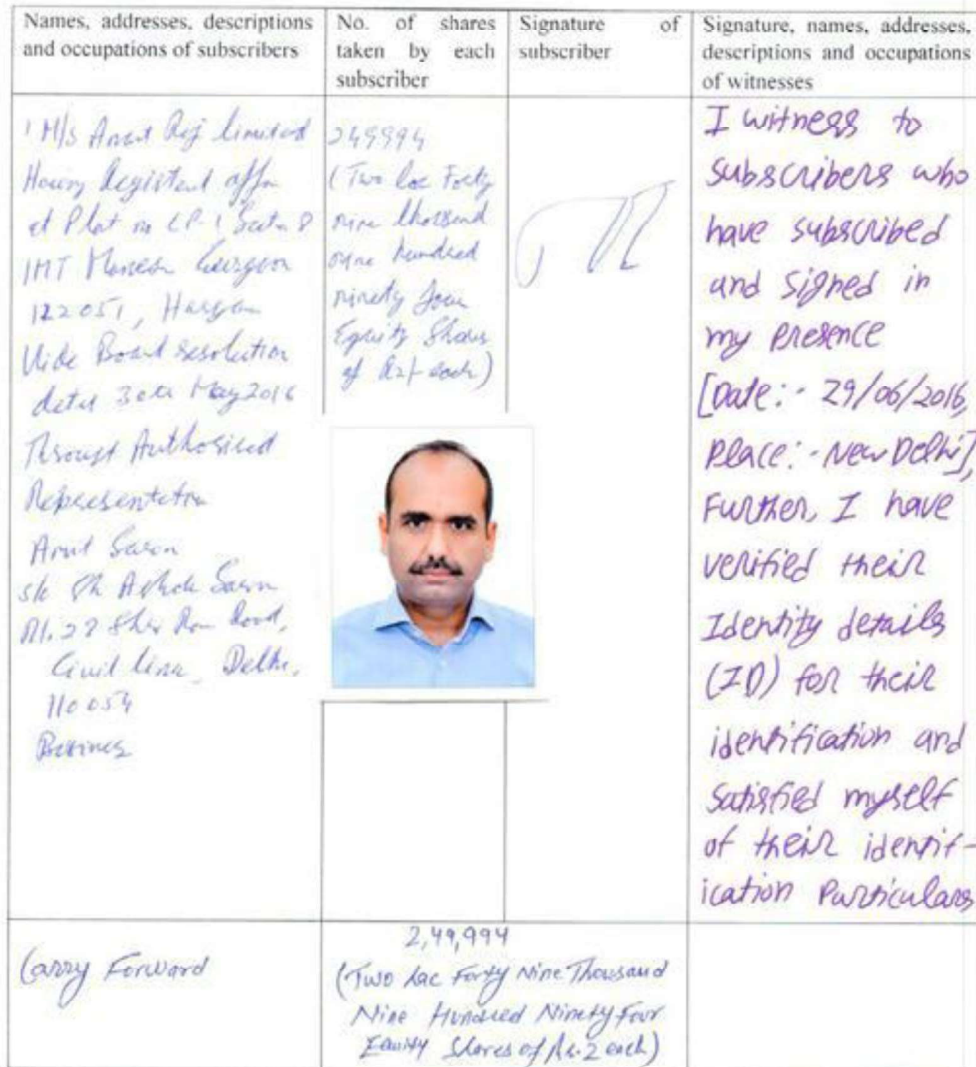 Names, addresses, descriptions
and occupations of subscribers
No. of shares
taken by each
subscriber
Signature of
subscriber
Signature, names, addresses,
descriptions and occupations
of witnesses
1 M/s Anant Raj Limited
Having Registered office
at Plot no CP-1 Sector 8
IMT Manesar Gurgaon
122051, Haryana
Vide Board resolution
dated 30th May 2016
Through Authorised
Representative
Amit Sarin
s/o Sh Ashok Sarin
R/. 28 Sher Ram Road,
Civil Lines, Delhi,
110054
Business
249994
(Two lac Forty
nine thousand
nine hundred
ninety four
Equity Shares
of Rs 2/- each)
I witness to
subscribers who
have subscribed
and signed in
my presence
[Date:- 29/06/2016,
Place:- New Delhi],
Further, I have
verified their
Identity details
(ID) for their
identification and
satisfied myself
of their identif-
ication Particulars
Carry Forward
2,49,994
(Two Lac Forty Nine Thousand
Nine Hundred Ninety Four
Equity Shares of Rs. 2 each)